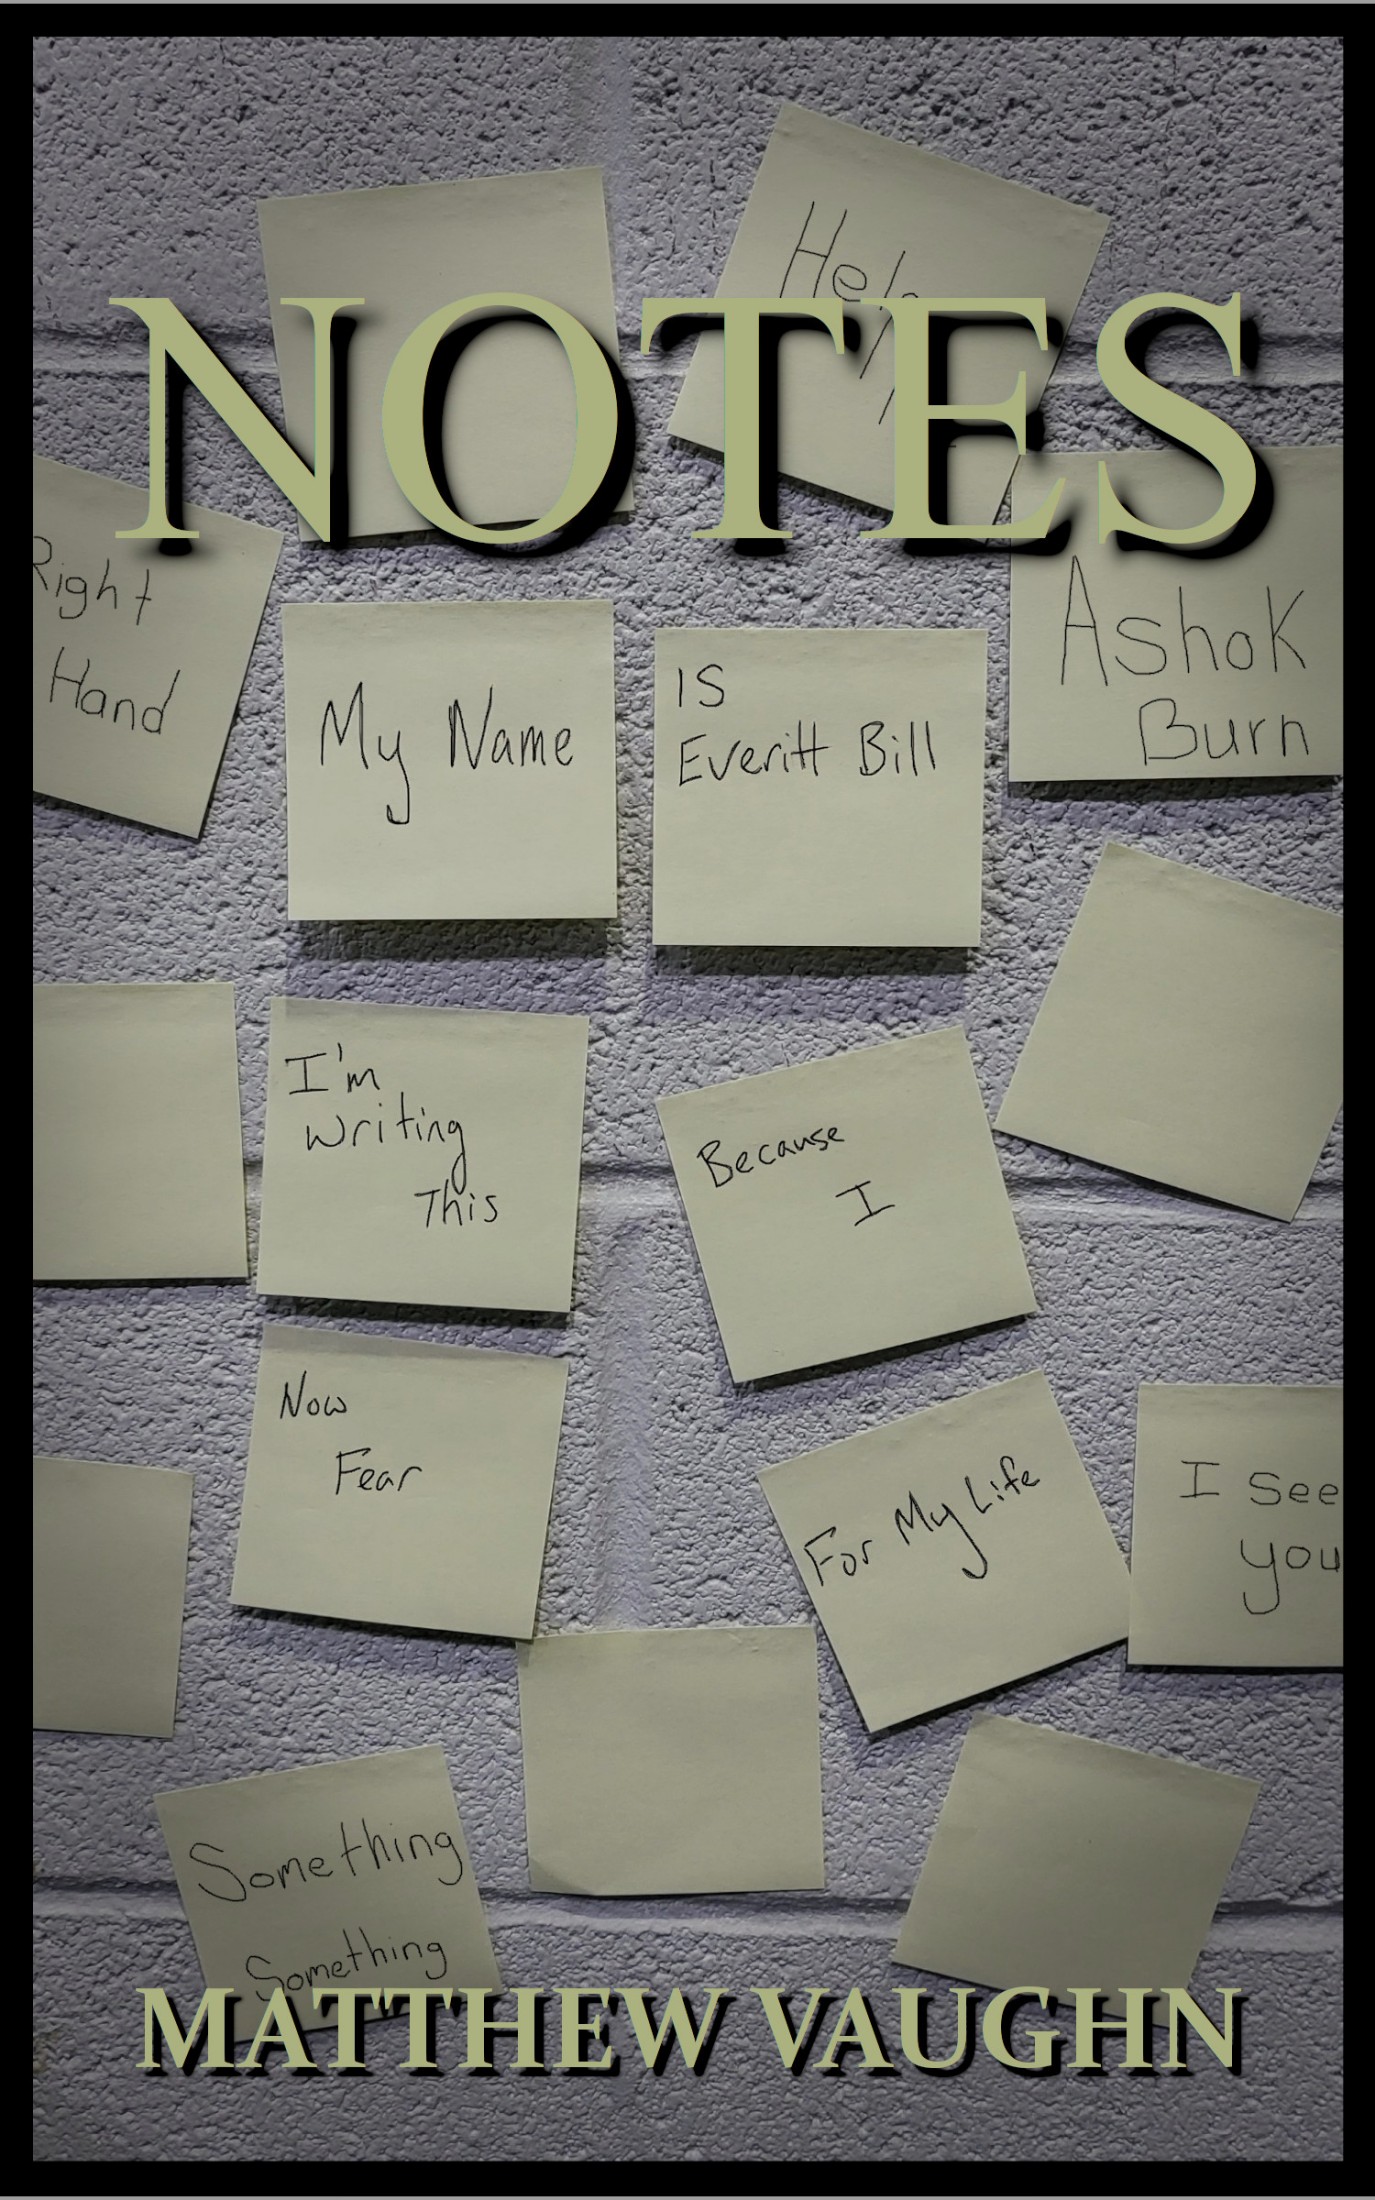 Help
NOTES
Right
Hand
My Name
IS
Everitt Bill
Ashok
Burn
I'm
Writing
This
Because
I
Now
Fear
For My Life
I See
you
Something
Something
MATTHEW VAUGHN